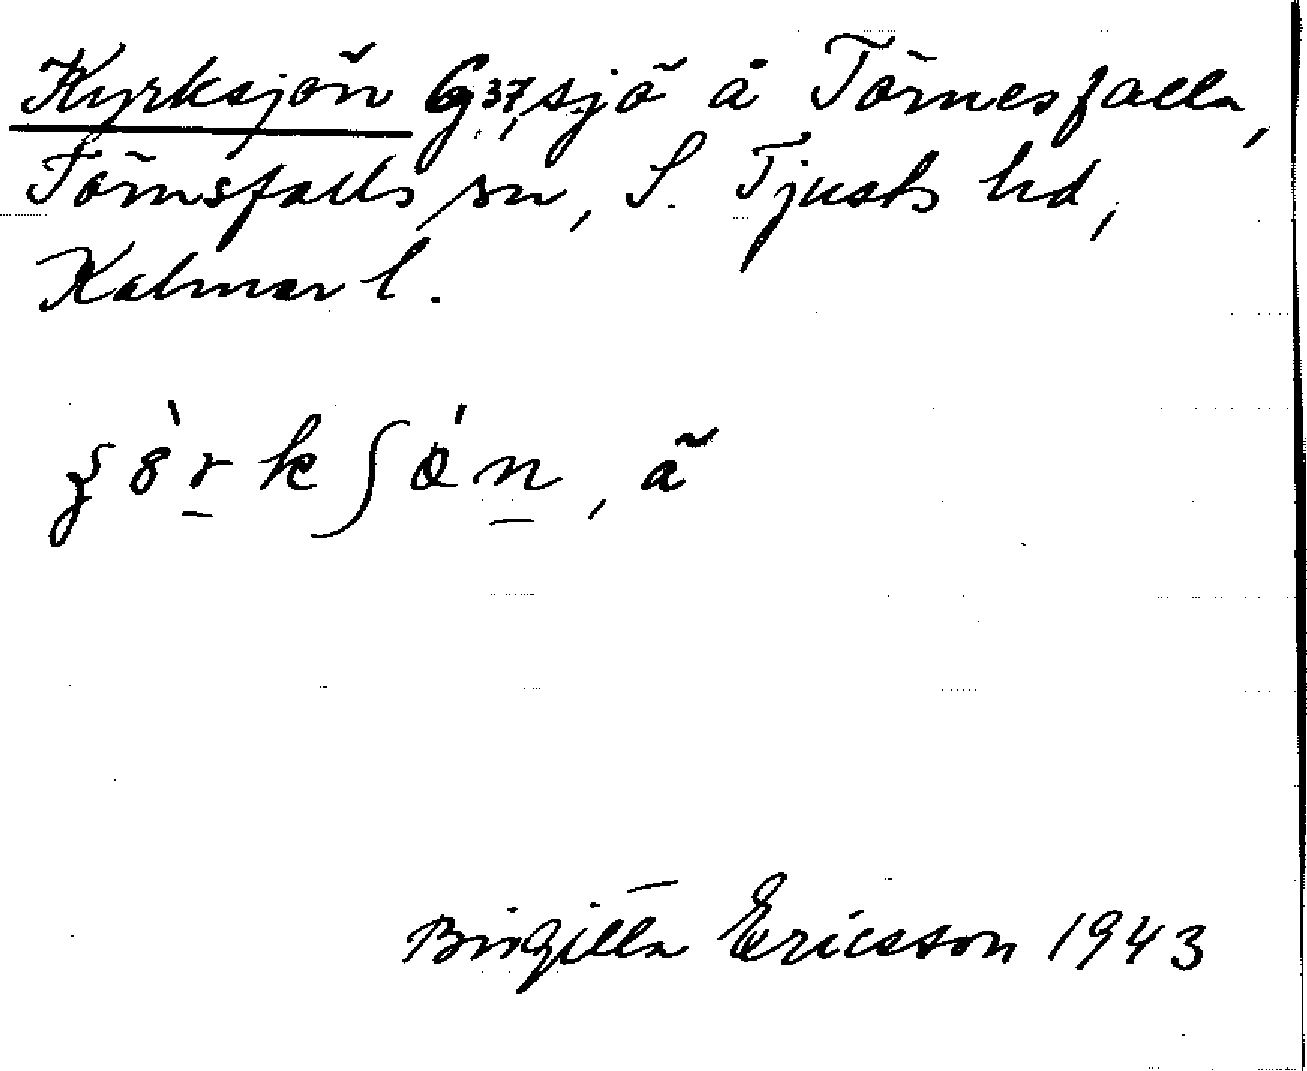 Kyrksjön Gg 37, sjö å Törnesfalla,
Törnsfalls sn, S. Tjusts hd,
Kalmar l.
, ä
Birgitta Ericsson 1943